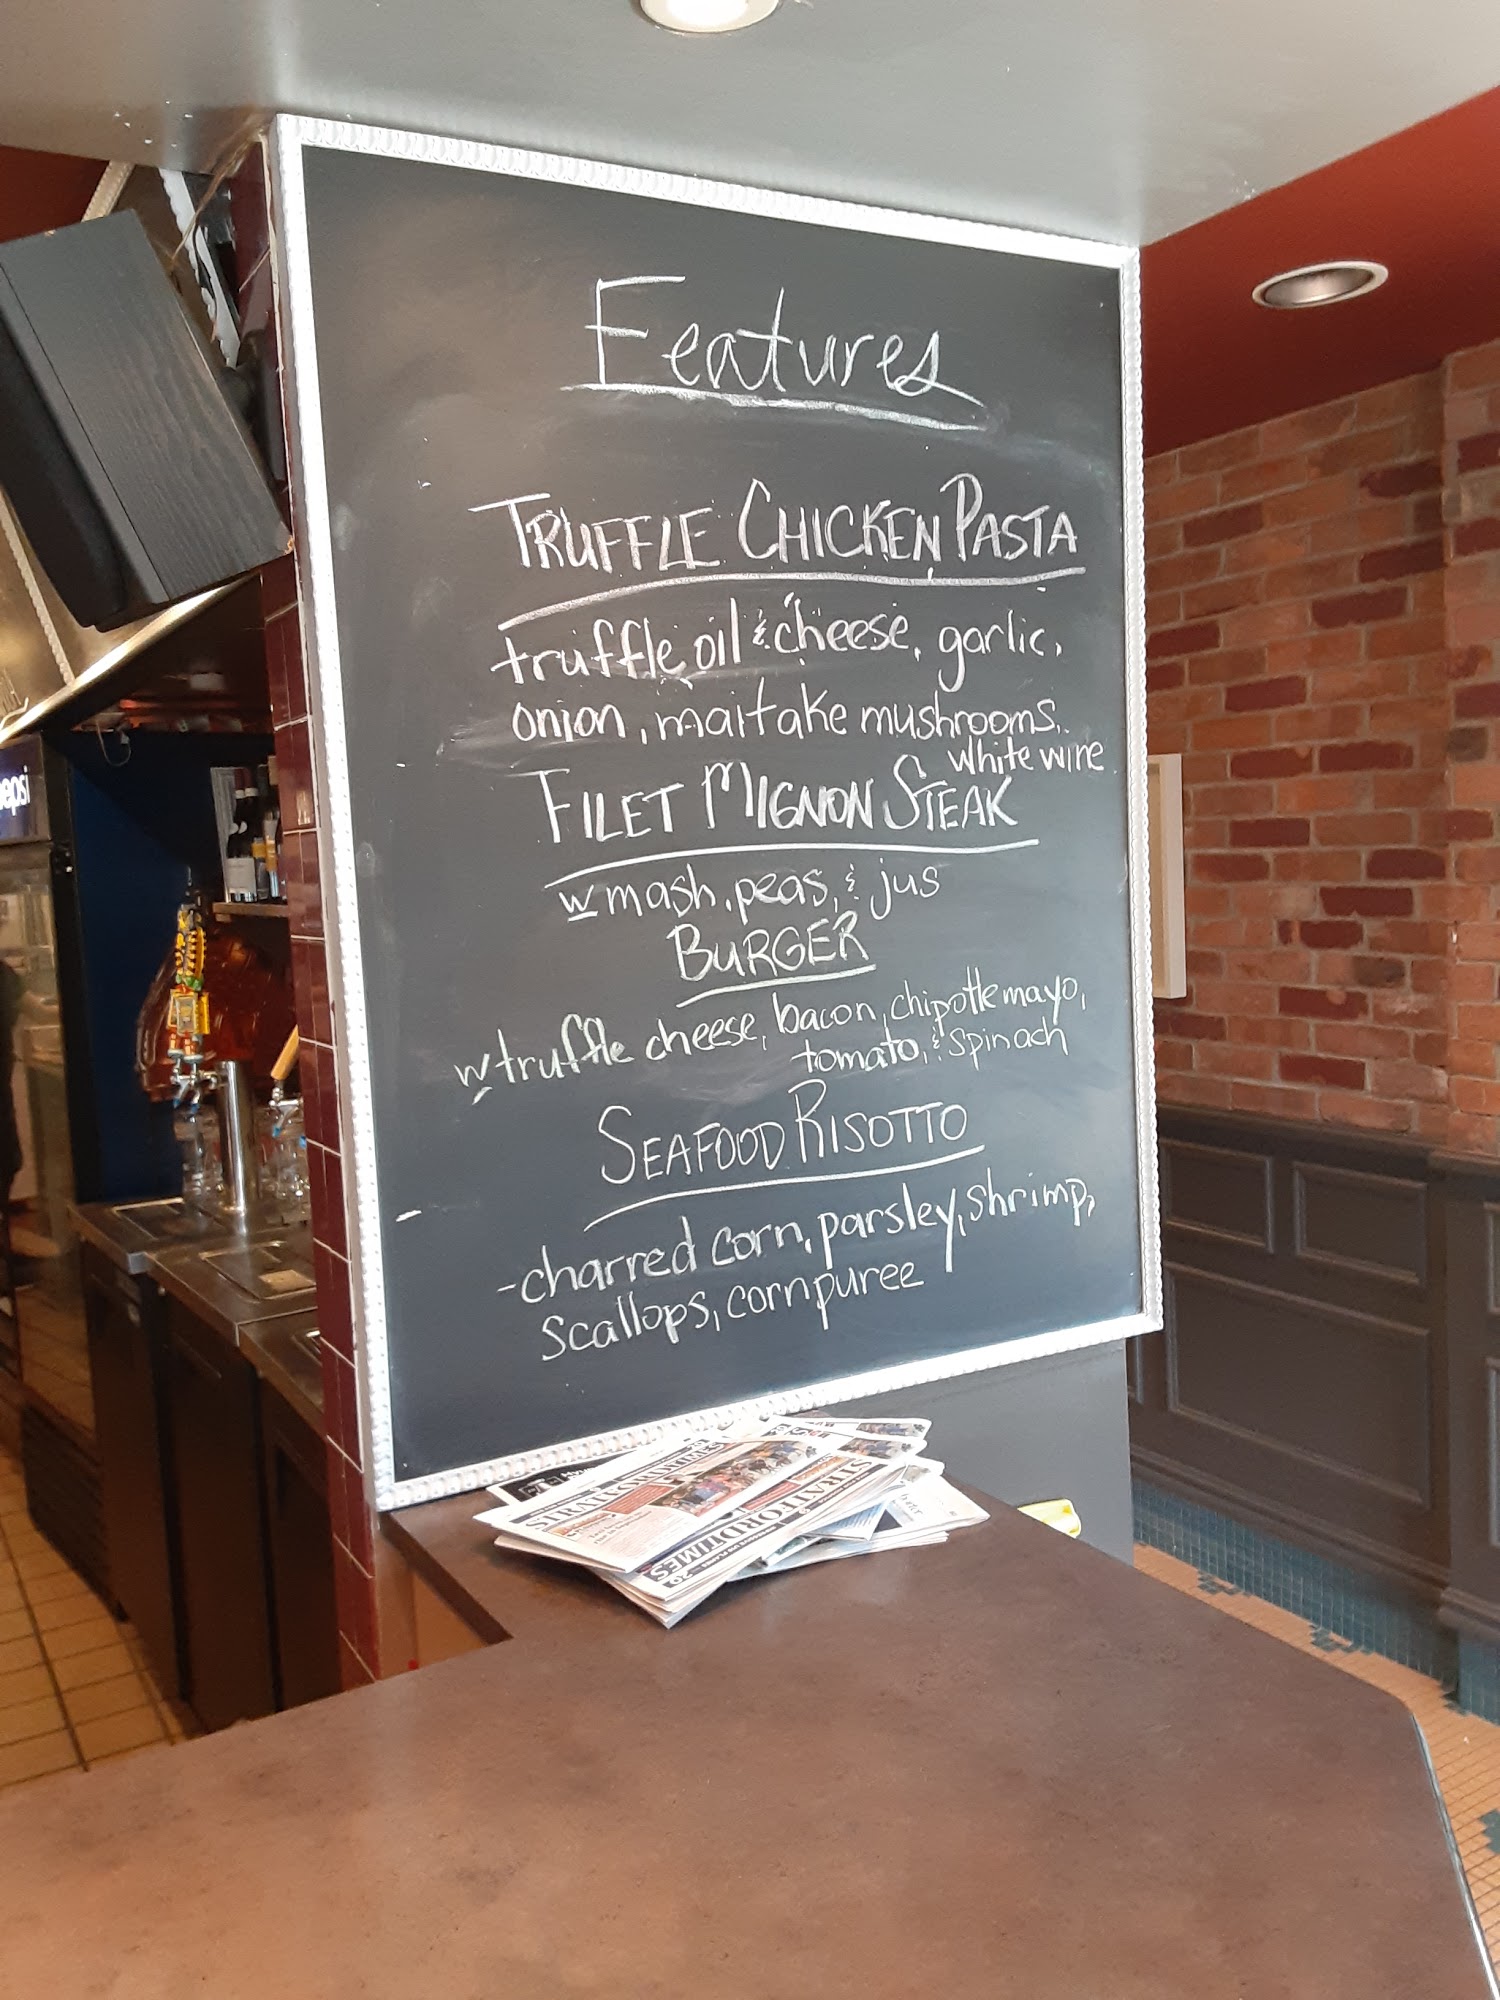 Features
TRUFFLE CHICKEN PASTA
truffle oil & cheese, garlic,
onion, maitake mushrooms,
white wine
FILET MIGNON STEAK
w mash, peas, & jus
BURGER
w truffle cheese, bacon, chipotle mayo,
tomato, & spinach
SEAFOOD RISOTTO
-charred corn, parsley, shrimp,
scallops, corn puree
epsi
STRATFORDTIMES